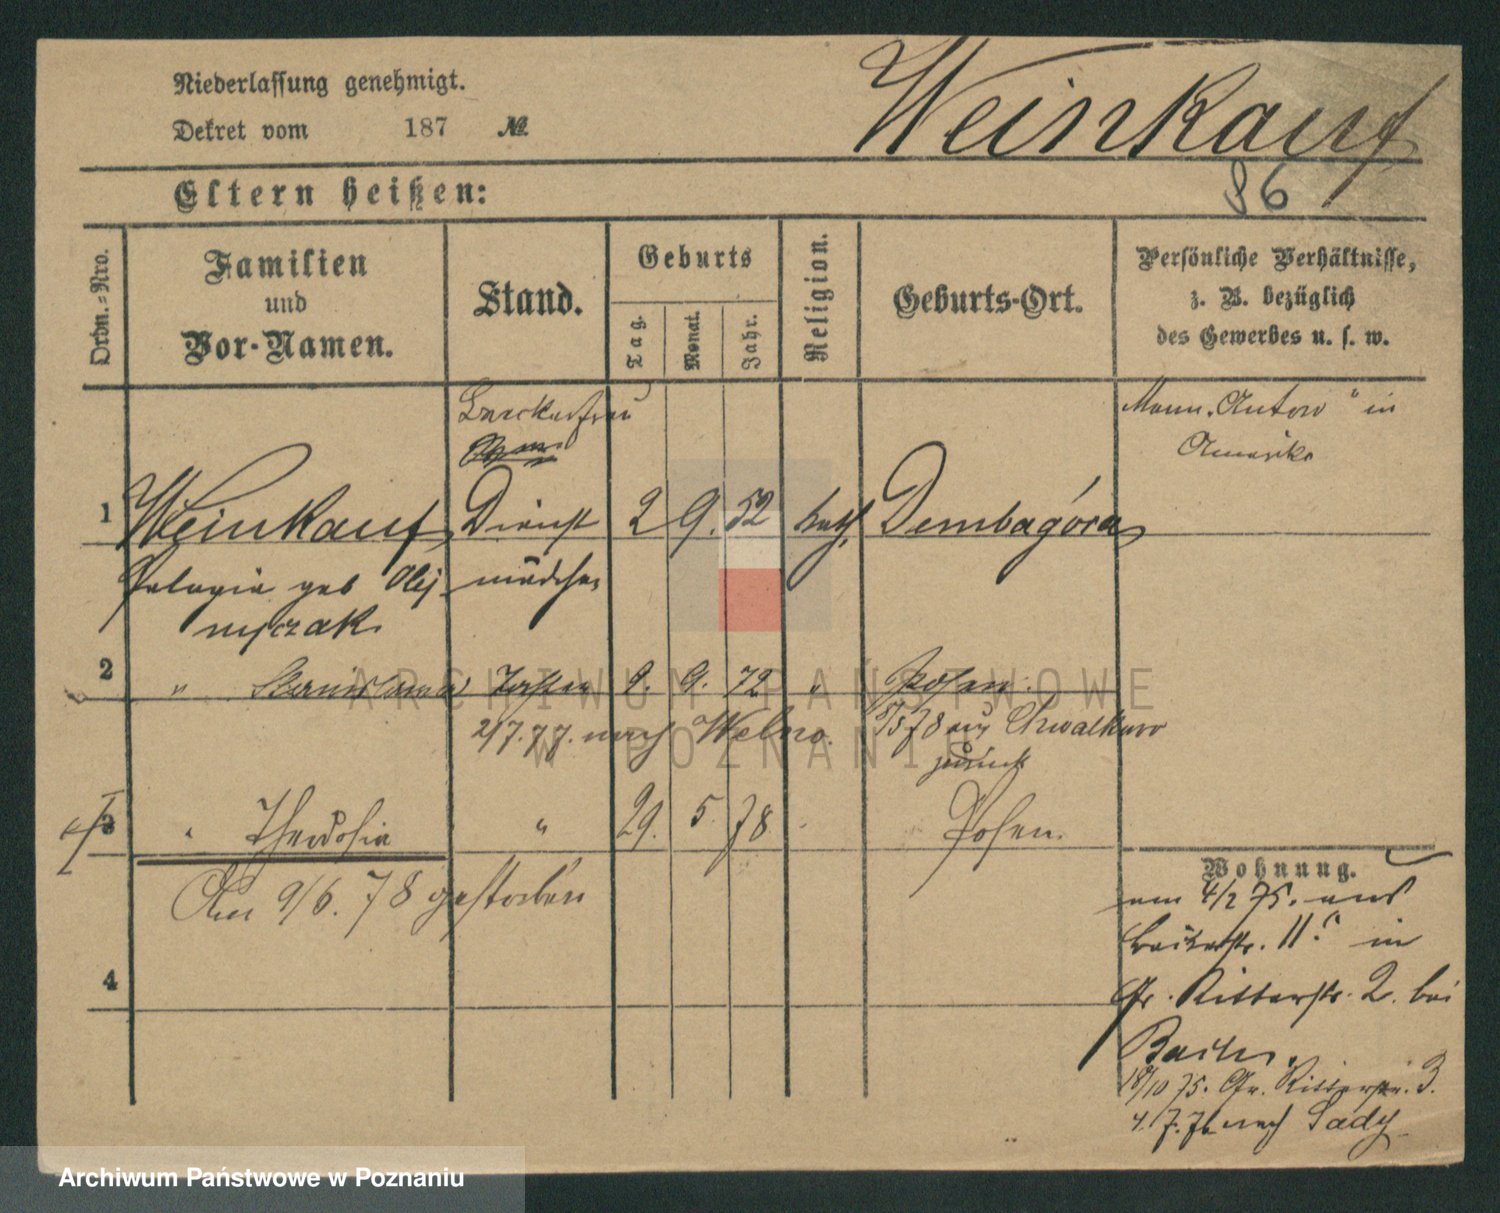 Niederlassung genehmigt.
Dekret vom 187 №
Weinkauf
Eltern heißen:
86
Ordn.=Nro.
Familien
und
Vor-Namen.
Stand.
Geburts
Tag.
Monat.
Jahr.
Religion.
Geburts-Ort.
Persönliche Verhältnisse,
z. B. bezüglich
des Gewerbes u. s. w.
Mann "Anton" in
Amerika
1 Weinkauf Dienst 2 9. 52 kath. Dembagóra
Pelagia geb Olej mädchen
nyczak
2 " Stanislawa Tochter 9. 72 " Posen.
2/7.77. nach Welno. 8/5 78 aus Chwalkowo
zurück
3 " Theodosia " 29. 5 78 Posen.
Am 9/6. 78 gestorben
4
Wohnung.
am 4/2 75. aus
11. in
Gr. Ritterstr. 2. bei
18/10 75. Gr. Ritterstr. 3.
4.7.76 nach Sady
ARCHIWUM PAŃSTWOWE
W POZNANIU
Archiwum Państwowe w Poznaniu